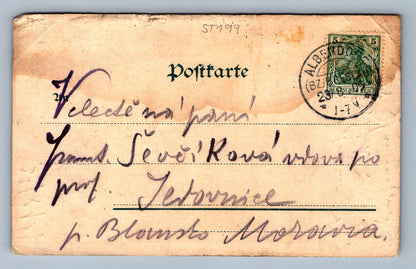 ST199
5
Postkarte
ALBENDORF
An
1-7 V
Velectě ná paní
Ševčíková vdova po
prof. Jedovnice
p. Blansko Morava.